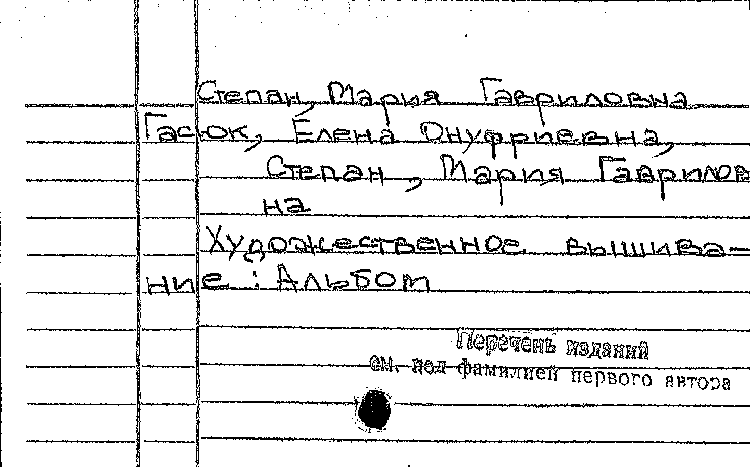 Степан, Мария Гавриловна
Гасюк, Елена Онуфриевна,
Степан, Мария Гаврилов
на
Художественное вышива-
ние: Альбом
Перечень изданий
см. под фамилией первого автора